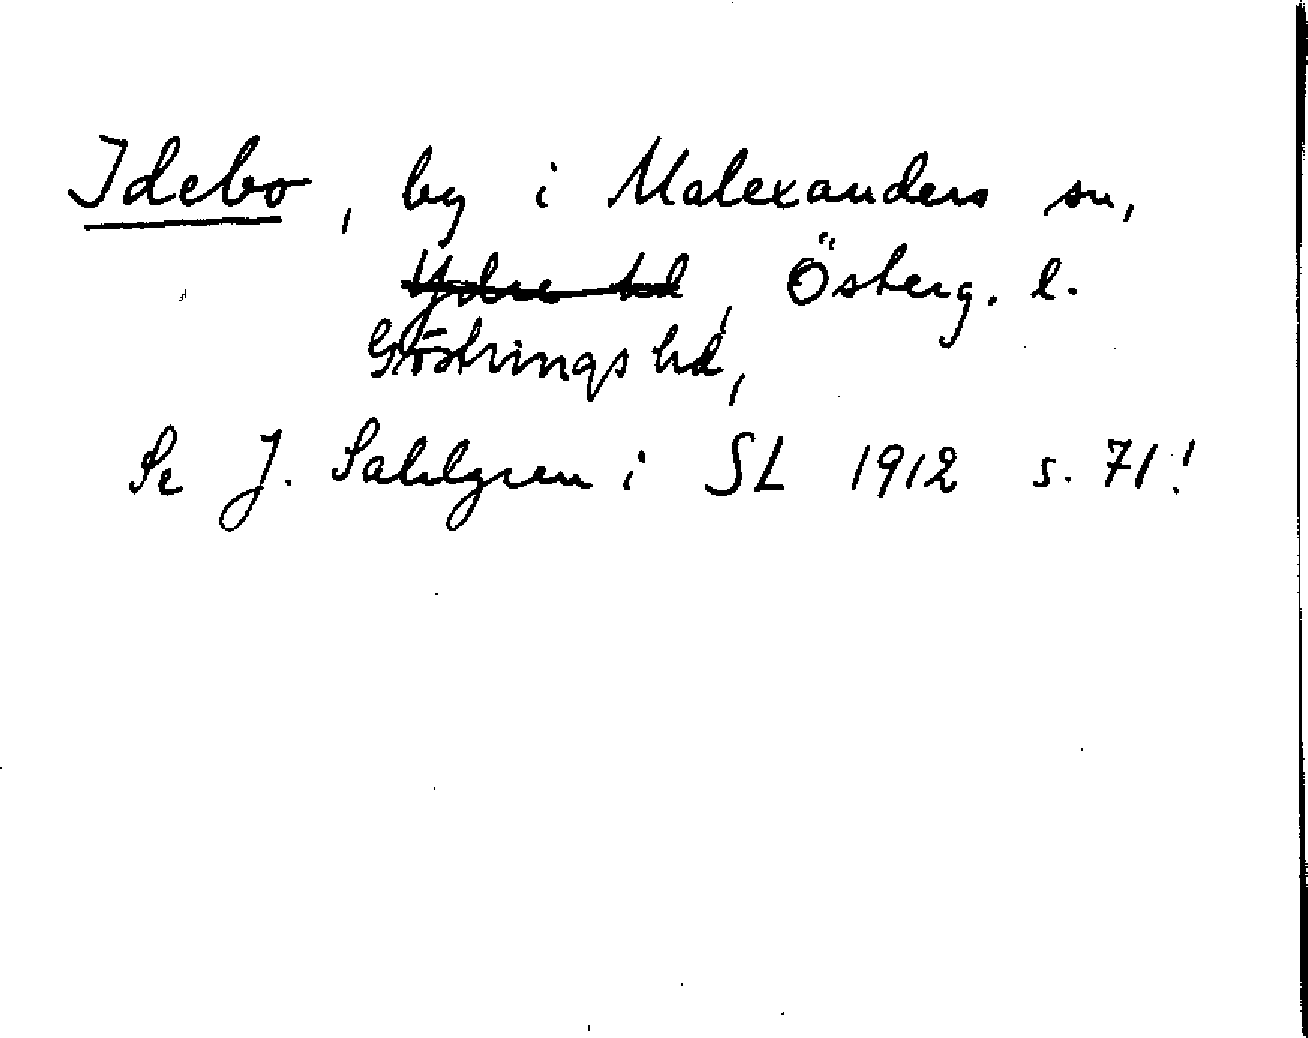 Idebo, by i Malexanders sn,
Ydre hd, Österg. l.
Göstrings hd,
Se J. Sahlgren i SL 1912 s. 71!